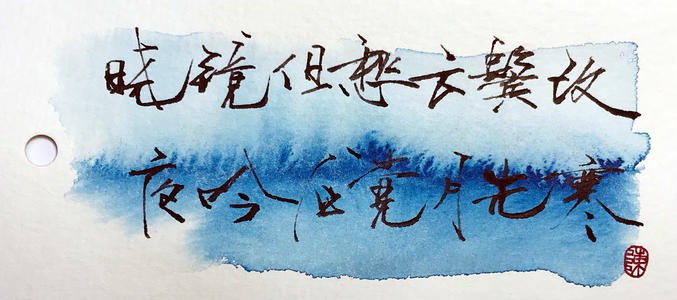 晓镜但愁云鬓改
夜吟应觉月光寒